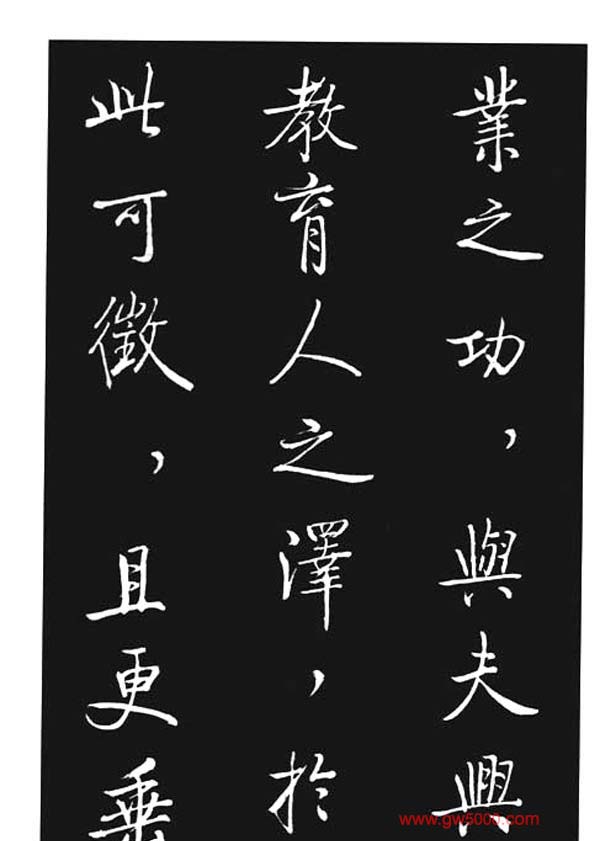 業之功，與夫興
教育人之澤，於
此可徵，且更乗
www.gw5000.com